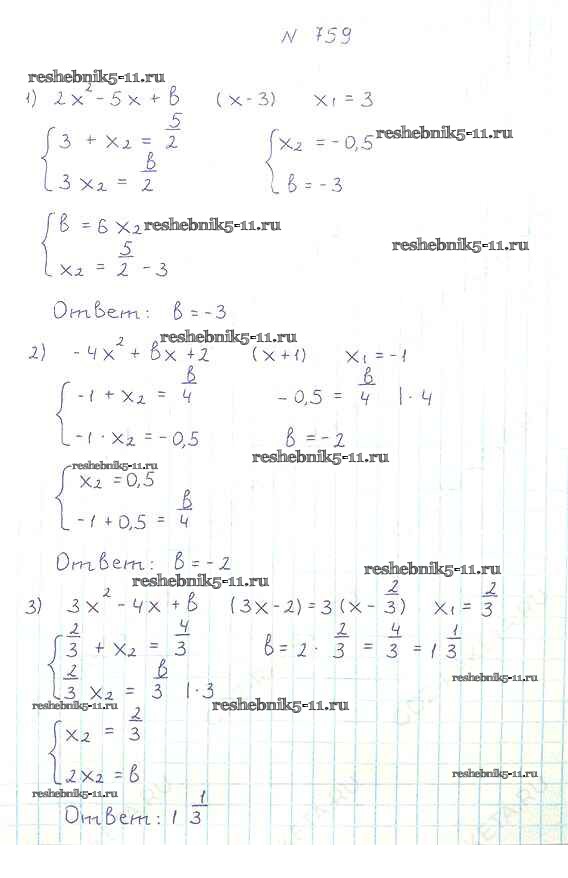 N 759
reshebnik5-11.ru
1) 2x² - 5x + в (x-3) x₁ = 3
{ 3 + x₂ = 5/2 { x₂ = -0,5 reshebnik5-11.ru
3x₂ = в/2 в = -3
{ в = 6x₂ reshebnik5-11.ru
x₂ = 5/2 - 3 reshebnik5-11.ru
Ответ: в = -3
reshebnik5-11.ru
2) -4x² + вx + 2 (x+1) x₁ = -1
{ -1 + x₂ = в/4 -0,5 = в/4 | · 4
-1 · x₂ = -0,5 в = -2
reshebnik5-11.ru
reshebnik5-11.ru
{ x₂ = 0,5
-1 + 0,5 = в/4
Ответ: в = -2
reshebnik5-11.ru
reshebnik5-11.ru
3) 3x² - 4x + в (3x-2) = 3(x - 2/3) x₁ = 2/3
{ 2/3 + x₂ = 4/3 в = 2 · 2/3 = 4/3 = 1 1/3
2/3 x₂ = в/3 | · 3
reshebnik5-11.ru
reshebnik5-11.ru reshebnik5-11.ru
{ x₂ = 2/3
2x₂ = в
reshebnik5-11.ru
reshebnik5-11.ru
Ответ: 1 1/3